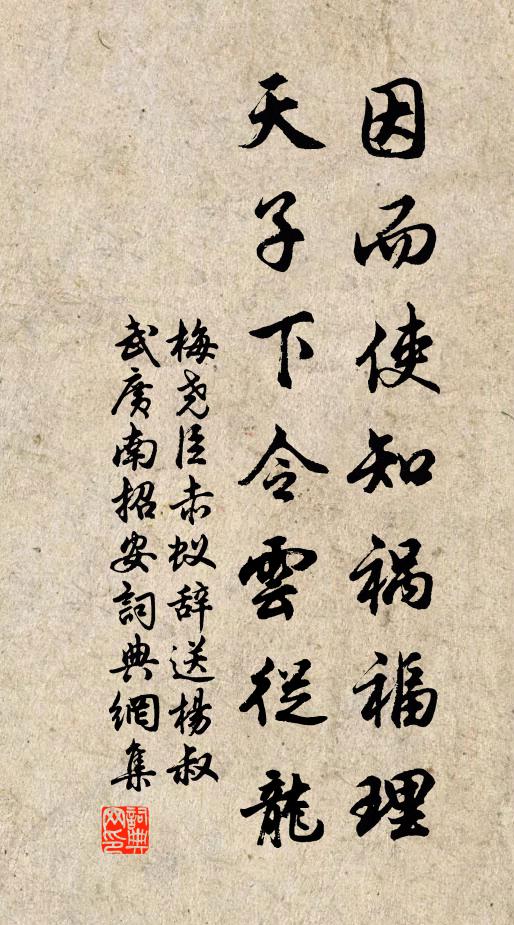 因而使知祸福理
天子下令雲從龍
梅尧臣赤蚁辞送楊叔
武廣南招安詞典網集
詞典网印